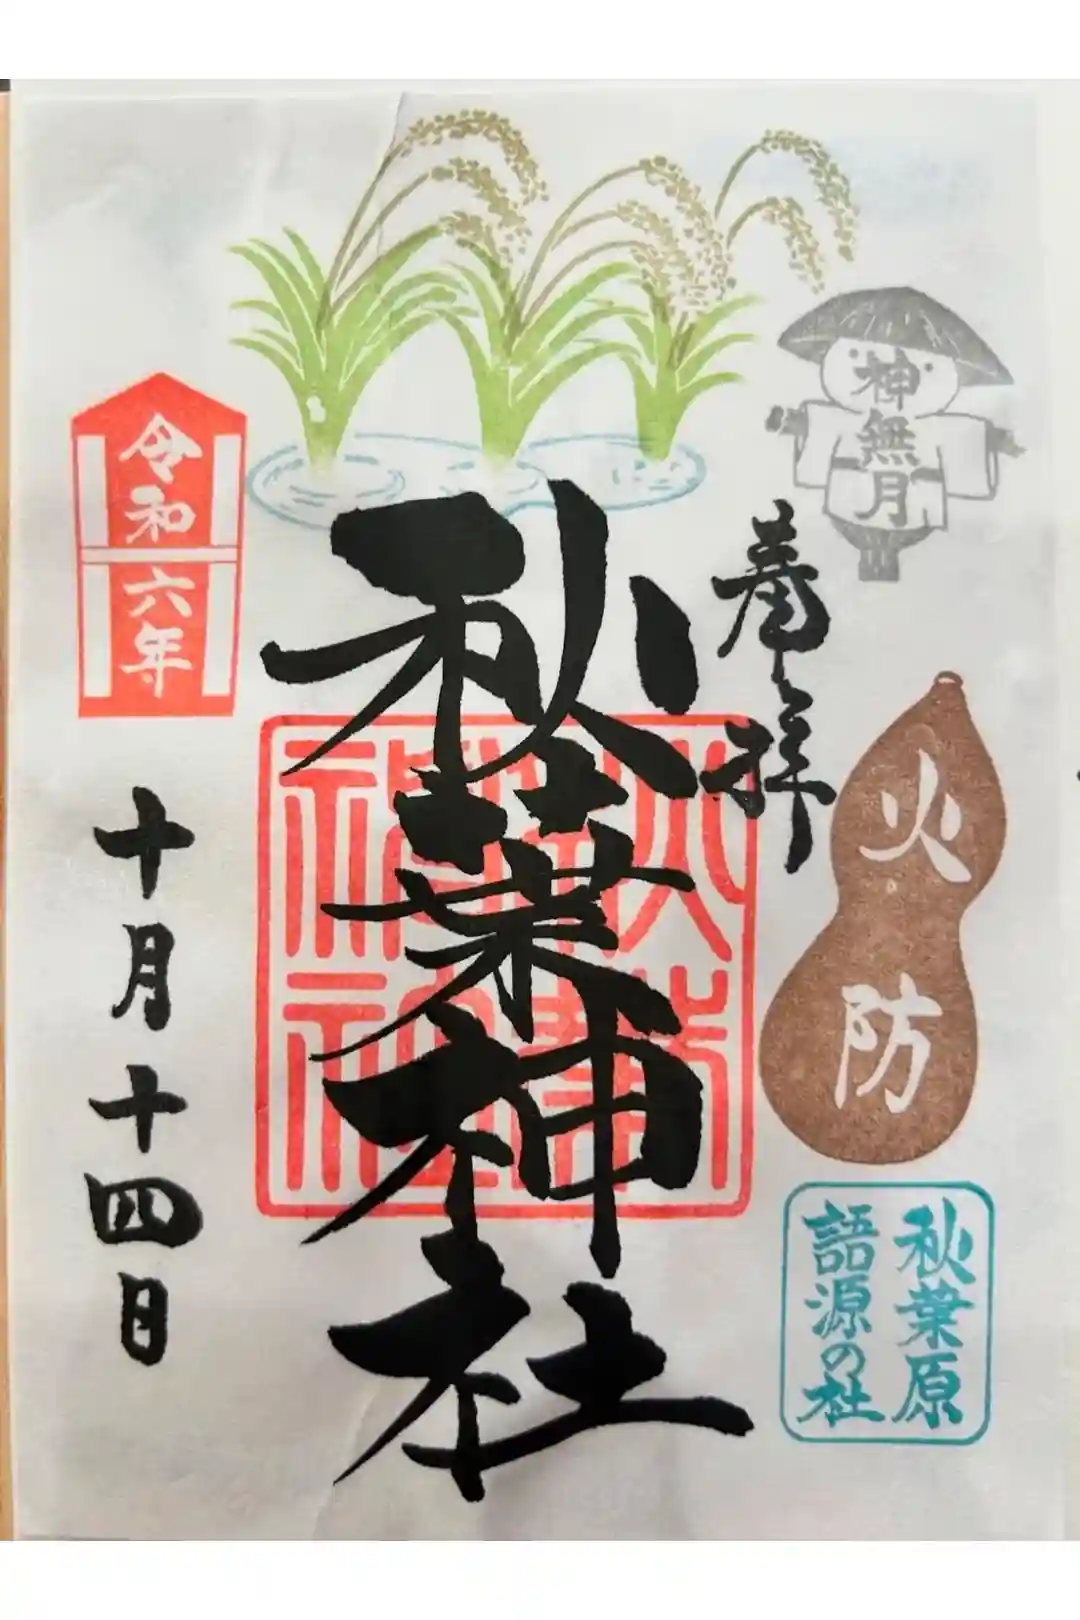 神無月
奉拝
火防
秋葉原
語源の社
秋葉神社
秋葉神社
令和六年
十月十四日